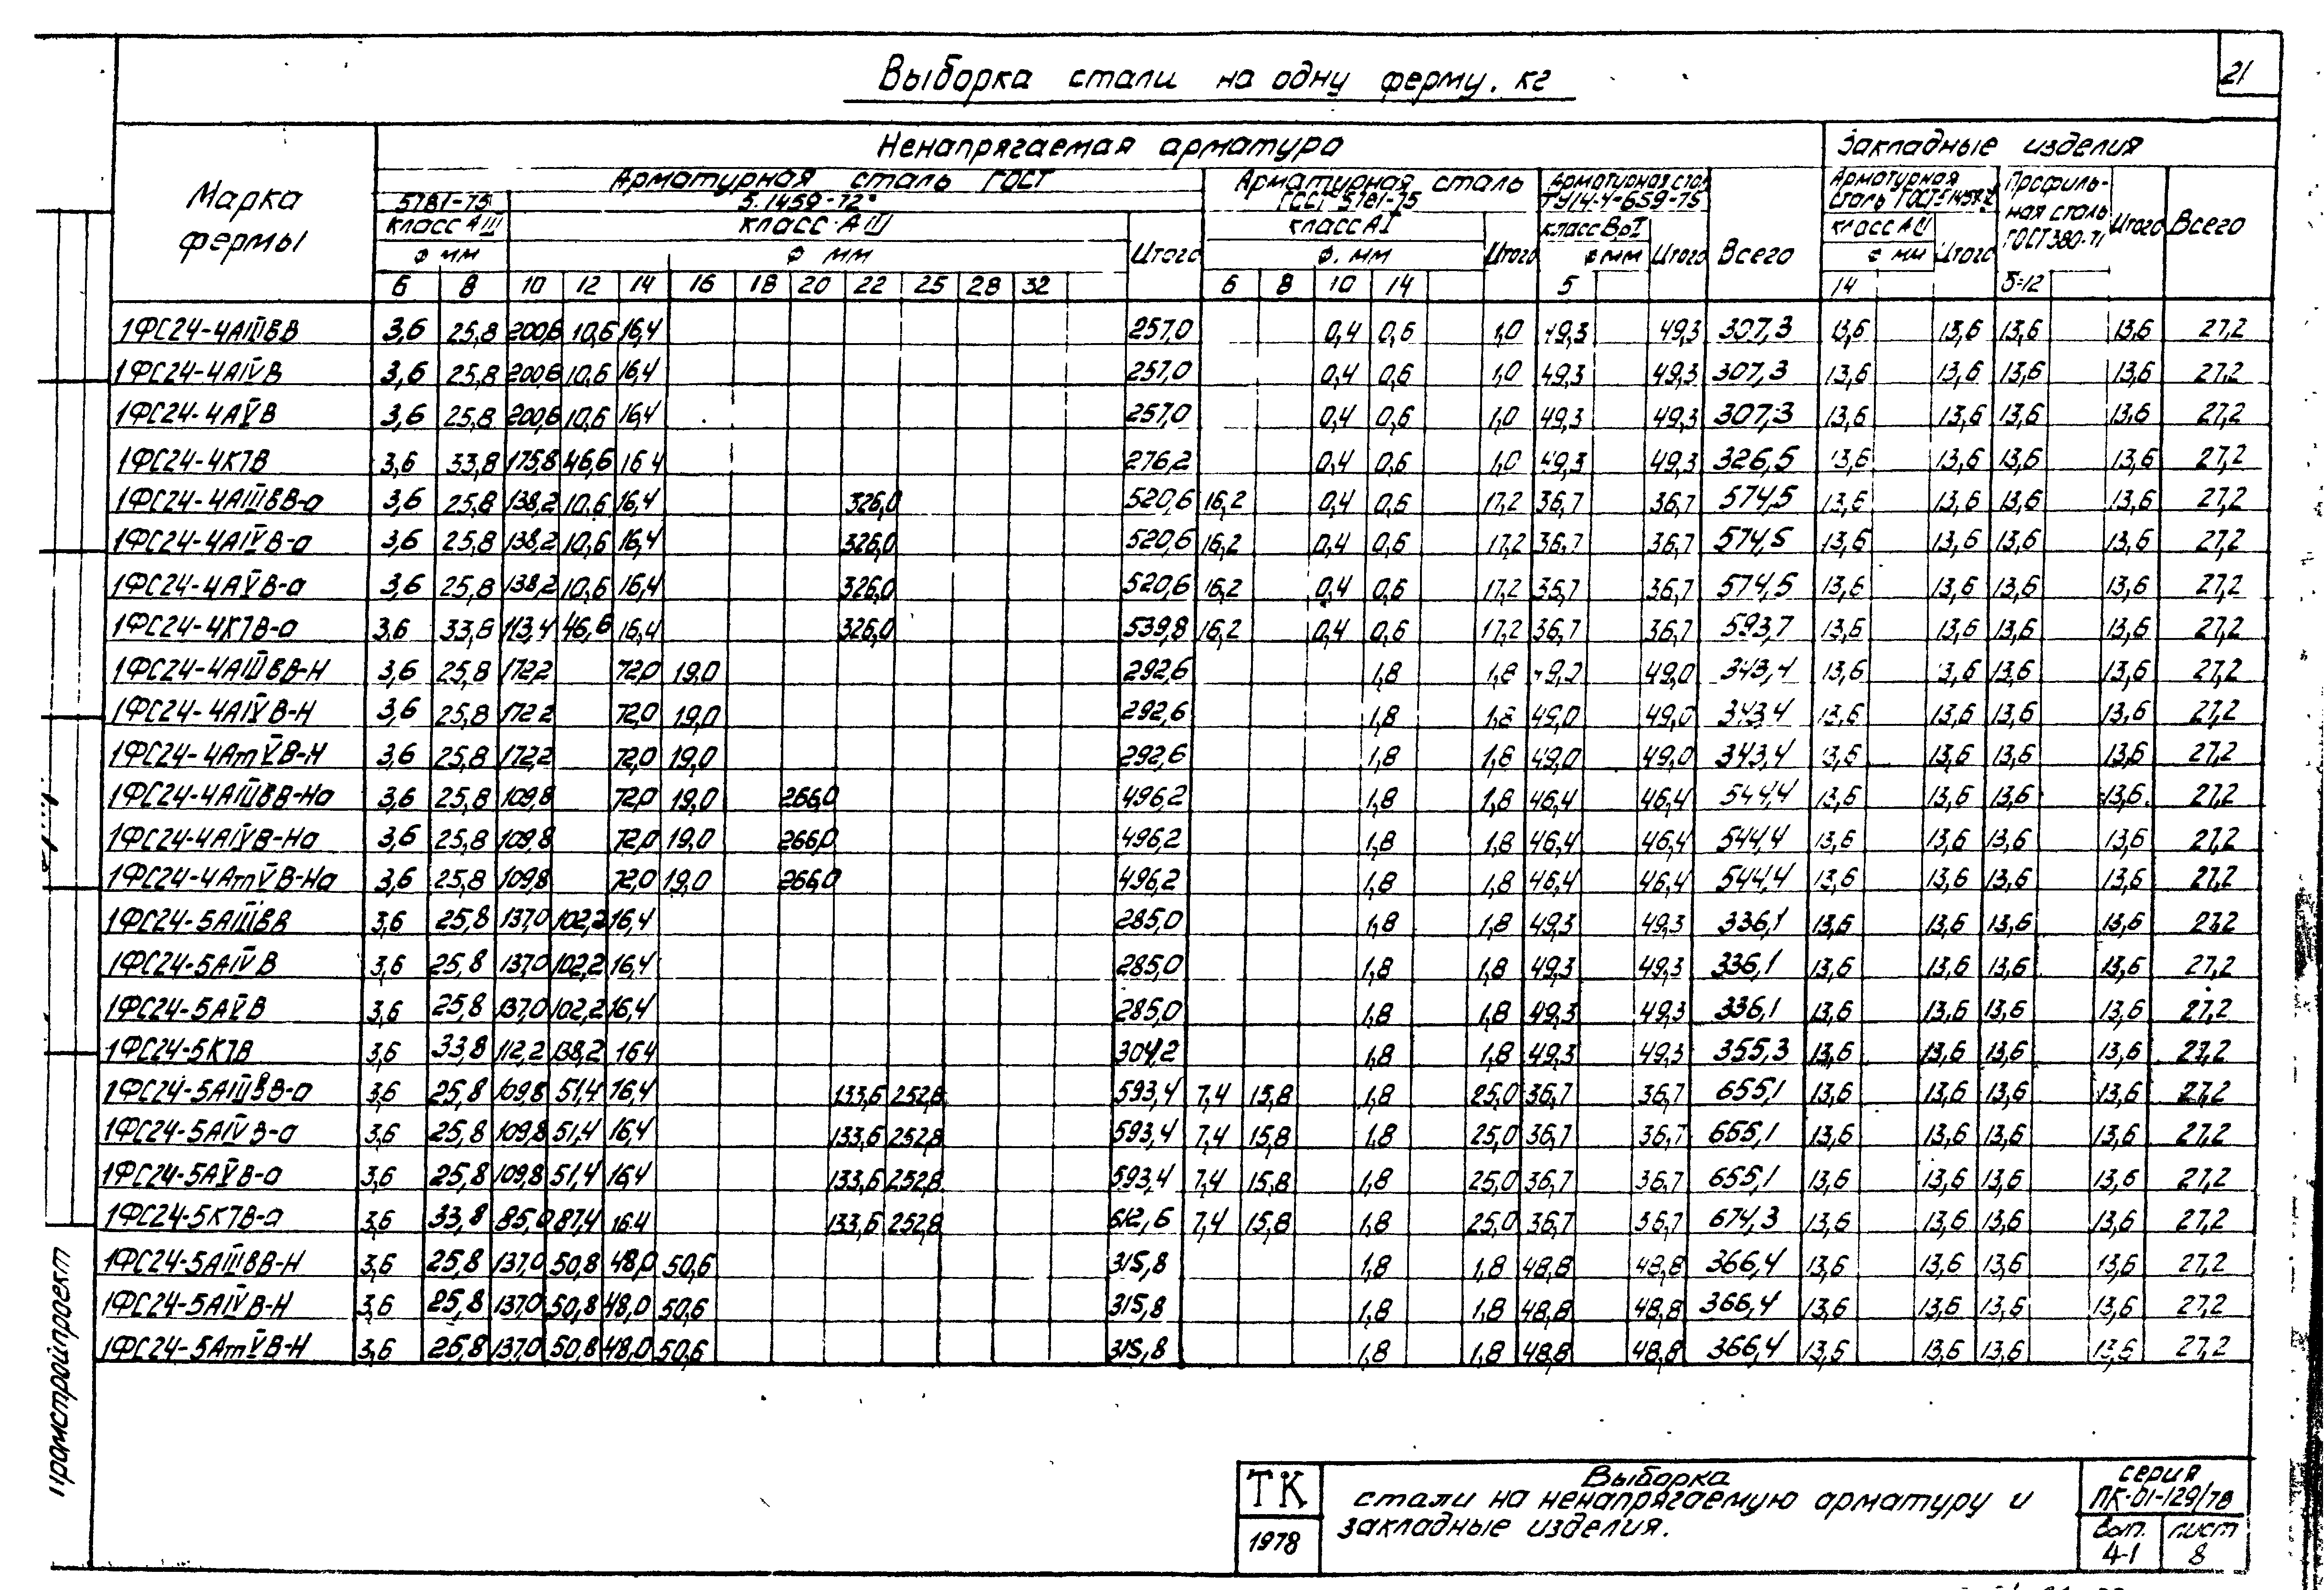 21
Выборка стали на одну ферму. кг
Марка фермы
Ненапрягаемая арматура
Закладные изделия
Арматурная сталь ГОСТ
5781-75
5.1459-72*
класс А III
класс А III
ф мм
ф мм
6 8 10 12 14 16 18 20 22 25 28 32
Итого
Арматурная сталь
ГОСТ 5781-75
класс А I
ф. мм
6 8 10 14
Итого
ТУ14-4-659-75
класс Вр I
ф мм
5
Итого
Всего
Арматурная
класс А III
ф мм
14
Итого
Профиль-
ная сталь
ГОСТ 380-71
δ=12
Итого
Всего
1ФС24-4АIIIвВ 3,6 25,8 200,6 10,6 16,4 257,0 0,4 0,6 1,0 49,3 49,3 307,3 13,6 13,6 13,6 13,6 27,2
1ФС24-4АIVВ 3,6 25,8 200,6 10,6 16,4 257,0 0,4 0,6 1,0 49,3 49,3 307,3 13,6 13,6 13,6 13,6 27,2
1ФС24-4АVВ 3,6 25,8 200,6 10,6 16,4 257,0 0,4 0,6 1,0 49,3 49,3 307,3 13,6 13,6 13,6 13,6 27,2
1ФС24-4К7В 3,6 33,8 175,8 46,6 16,4 276,2 0,4 0,6 1,0 49,3 49,3 326,5 13,6 13,6 13,6 13,6 27,2
1ФС24-4АIIIвВ-а 3,6 25,8 138,2 10,6 16,4 326,0 520,6 16,2 0,4 0,6 17,2 36,7 36,7 574,5 13,6 13,6 13,6 13,6 27,2
1ФС24-4АIVВ-а 3,6 25,8 138,2 10,6 16,4 326,0 520,6 16,2 0,4 0,6 17,2 36,7 36,7 574,5 13,6 13,6 13,6 13,6 27,2
1ФС24-4АVВ-а 3,6 25,8 138,2 10,6 16,4 326,0 520,6 16,2 0,4 0,6 17,2 36,7 36,7 574,5 13,6 13,6 13,6 13,6 27,2
1ФС24-4К7В-а 3,6 33,8 113,4 46,6 16,4 326,0 539,8 16,2 0,4 0,6 17,2 36,7 36,7 593,7 13,6 13,6 13,6 13,6 27,2
1ФС24-4АIIIвВ-Н 3,6 25,8 172,2 72,0 19,0 292,6 1,8 1,8 49,0 49,0 343,4 13,6 13,6 13,6 13,6 27,2
1ФС24-4АIVВ-Н 3,6 25,8 172,2 72,0 19,0 292,6 1,8 1,8 49,0 49,0 343,4 13,6 13,6 13,6 13,6 27,2
1ФС24-4АтVВ-Н 3,6 25,8 172,2 72,0 19,0 292,6 1,8 1,8 49,0 49,0 343,4 13,6 13,6 13,6 13,6 27,2
1ФС24-4АIIIвВ-На 3,6 25,8 109,8 72,0 19,0 266,0 496,2 1,8 1,8 46,4 46,4 544,4 13,6 13,6 13,6 13,6 27,2
1ФС24-4АIVВ-На 3,6 25,8 109,8 72,0 19,0 266,0 496,2 1,8 1,8 46,4 46,4 544,4 13,6 13,6 13,6 13,6 27,2
1ФС24-4АтVВ-На 3,6 25,8 109,8 72,0 19,0 266,0 496,2 1,8 1,8 46,4 46,4 544,4 13,6 13,6 13,6 13,6 27,2
1ФС24-5АIIIвВ 3,6 25,8 137,0 102,2 16,4 285,0 1,8 1,8 49,3 49,3 336,1 13,6 13,6 13,6 13,6 27,2
1ФС24-5АIVВ 3,6 25,8 137,0 102,2 16,4 285,0 1,8 1,8 49,3 49,3 336,1 13,6 13,6 13,6 13,6 27,2
1ФС24-5АVВ 3,6 25,8 137,0 102,2 16,4 285,0 1,8 1,8 49,3 49,3 336,1 13,6 13,6 13,6 13,6 27,2
1ФС24-5К7В 3,6 33,8 112,2 138,2 16,4 304,2 1,8 1,8 49,3 49,3 355,3 13,6 13,6 13,6 13,6 27,2
1ФС24-5АIIIвВ-а 3,6 25,8 109,8 51,4 16,4 133,6 252,8 593,4 7,4 15,8 1,8 25,0 36,7 36,7 655,1 13,6 13,6 13,6 13,6 27,2
1ФС24-5АIVВ-а 3,6 25,8 109,8 51,4 16,4 133,6 252,8 593,4 7,4 15,8 1,8 25,0 36,7 36,7 655,1 13,6 13,6 13,6 13,6 27,2
1ФС24-5АVВ-а 3,6 25,8 109,8 51,4 16,4 133,6 252,8 593,4 7,4 15,8 1,8 25,0 36,7 36,7 655,1 13,6 13,6 13,6 13,6 27,2
1ФС24-5К7В-а 3,6 33,8 85,0 87,4 16,4 133,6 252,8 612,6 7,4 15,8 1,8 25,0 36,7 36,7 674,3 13,6 13,6 13,6 13,6 27,2
1ФС24-5АIIIвВ-Н 3,6 25,8 137,0 50,8 48,0 50,6 315,8 1,8 1,8 48,8 48,8 366,4 13,6 13,6 13,6 13,6 27,2
1ФС24-5АIVВ-Н 3,6 25,8 137,0 50,8 48,0 50,6 315,8 1,8 1,8 48,8 48,8 366,4 13,6 13,6 13,6 13,6 27,2
1ФС24-5АтVВ-Н 3,6 25,8 137,0 50,8 48,0 50,6 315,8 1,8 1,8 48,8 48,8 366,4 13,6 13,6 13,6 13,6 27,2
Промстройпроект
ТК
1978
Выборка
стали на ненапрягаемую арматуру и
закладные изделия.
серия
ПК-01-129/78
вып. лист
4-1 8